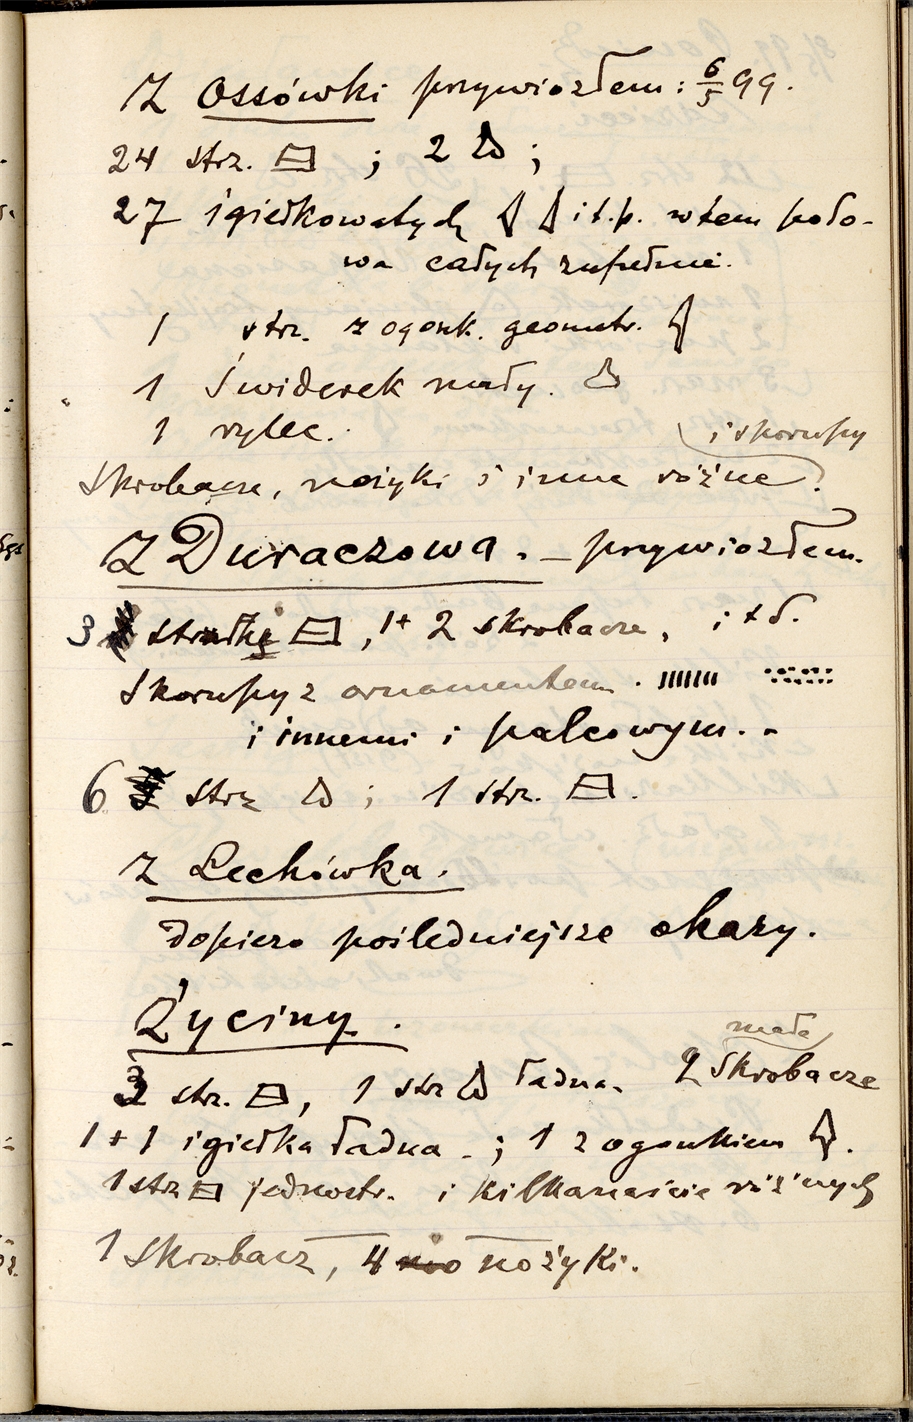 Z Ossówki przywiozłem: 6/5 99.
24 strz. ; 2 ;
27 igiełkowatych i t.p. w tem poło-
wa całych zupełnie.
1 strz. z ogonk. geometr.
1 świderek mały.
1 rylec.
i skorupy
Skrobacze, nożyki i inne różne.
Z Duraczowa. – przywiozłem.
3 strzałki , 1+2 skrobacze, i t d.
Skorupy z ornamentem.
i innemi i palcowym.
6 strz ; 1 strz. .
Z Lechówka.
dopiero pośledniejsze okazy.
Życiny.
małe
3 str. , 1 strz ładna. 2 Skrobacze
1+1 igiełka ładna ; 1 z ogonkiem .
1 strz jednostr. i kilkanaście różnych
1 Skrobacz, 4 nożyki.